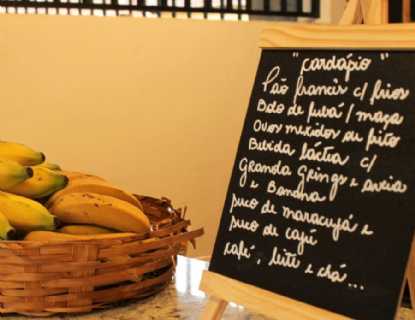 "cardápio"
Pão francês c/ frios
Bolo de fubá / maça
Ovos mexidos ou frito
Bebida láctea c/
Granola Grings e aveia
e Banana
suco de maracujá e
suco de cajú
café, leite e chá...